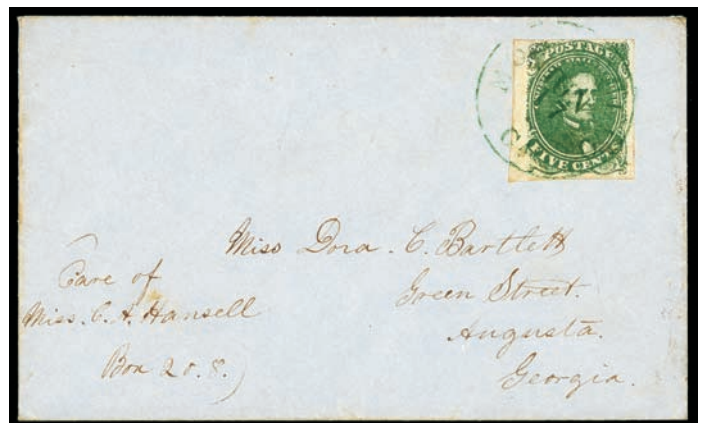 POSTAGE
FIVE CENTS
Miss Dora. C. Bartlett
Green Street.
Augusta.
Georgia.
Care of
Miss. C. A. Hansell
Box 20.8.